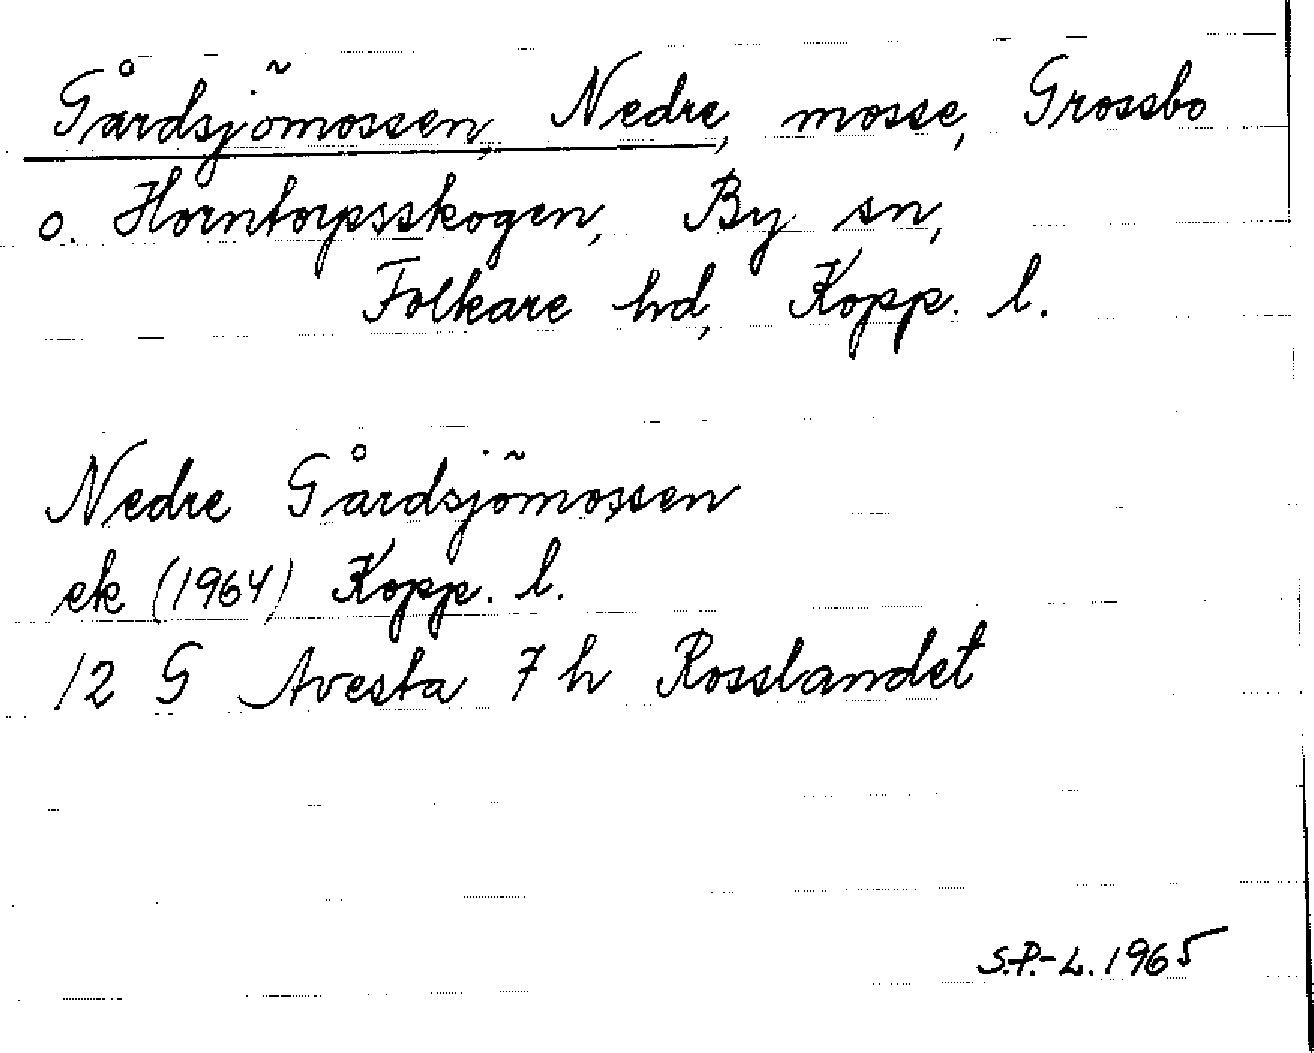 Gårdsjömossen, Nedre, mosse, Grossbo
o. Horntorpsskogen, By sn,
Folkare hd, Kopp. l.
Nedre Gårdsjömossen
ek (1964) Kopp. l.
12 G Avesta 7 h Rosslandet
S.P.-L. 1965